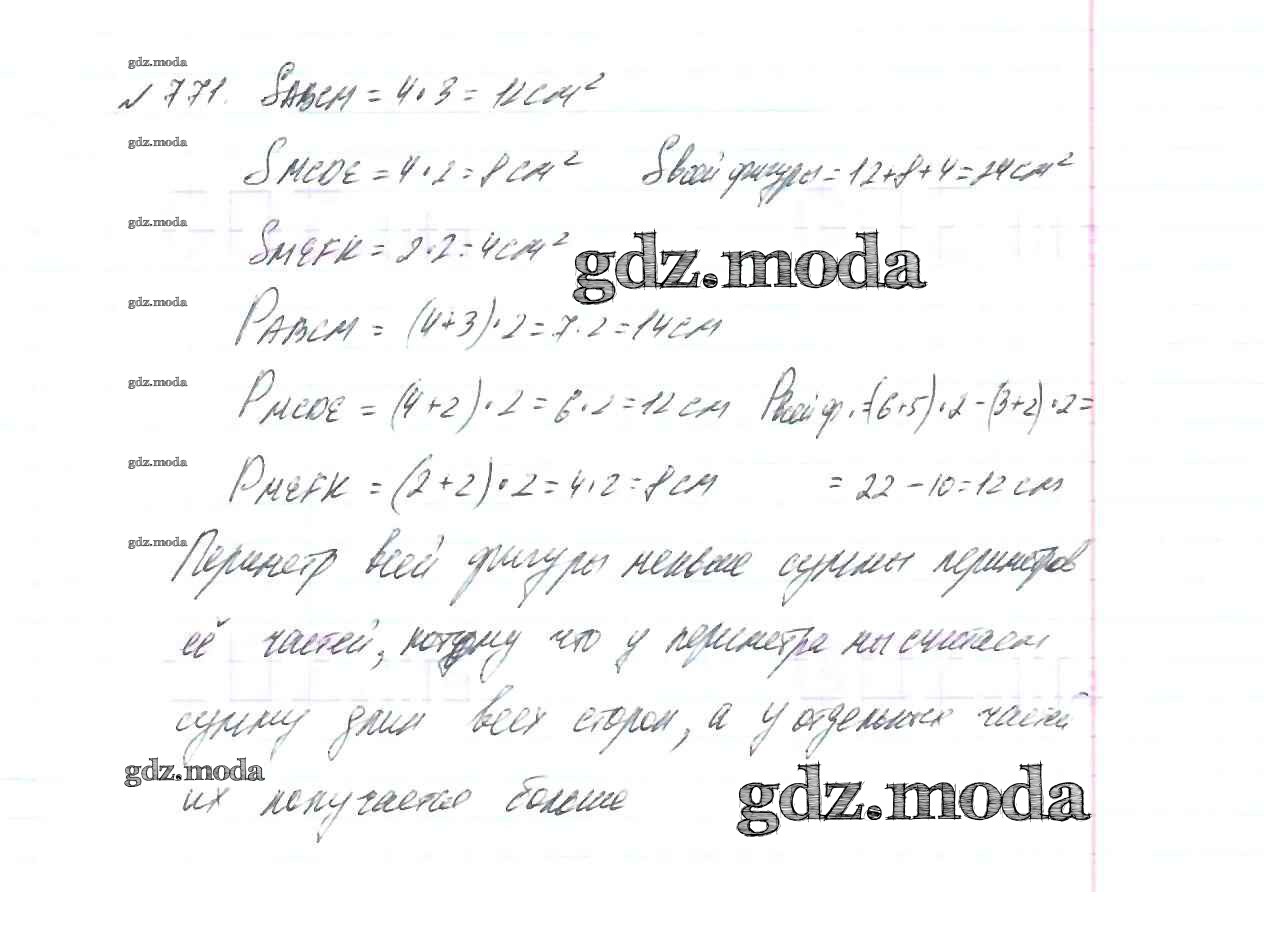 gdz.moda
№771. SABCM = 4·3 = 12 см²
gdz.moda
SMCDE = 4·2 = 8 см² Sвсей фигуры = 12+8+4=24см²
gdz.moda
SMEFK = 2·2=4см²
gdz.moda
gdz.moda
PABCM = (4+3)·2=7·2=14см
gdz.moda
PMCDE = (4+2)·2=6·2=12 см Pвсей ф.=(6+5)·2-(3+2)·2=
gdz.moda
PMEFK = (2+2)·2=4·2=8см = 22-10=12 см
gdz.moda
Периметр всей фигуры меньше суммы периметров
её частей, потому что у периметра мы считаем
сумму длин всех сторон, а у отдельных частей
gdz.moda
их получается больше
gdz.moda